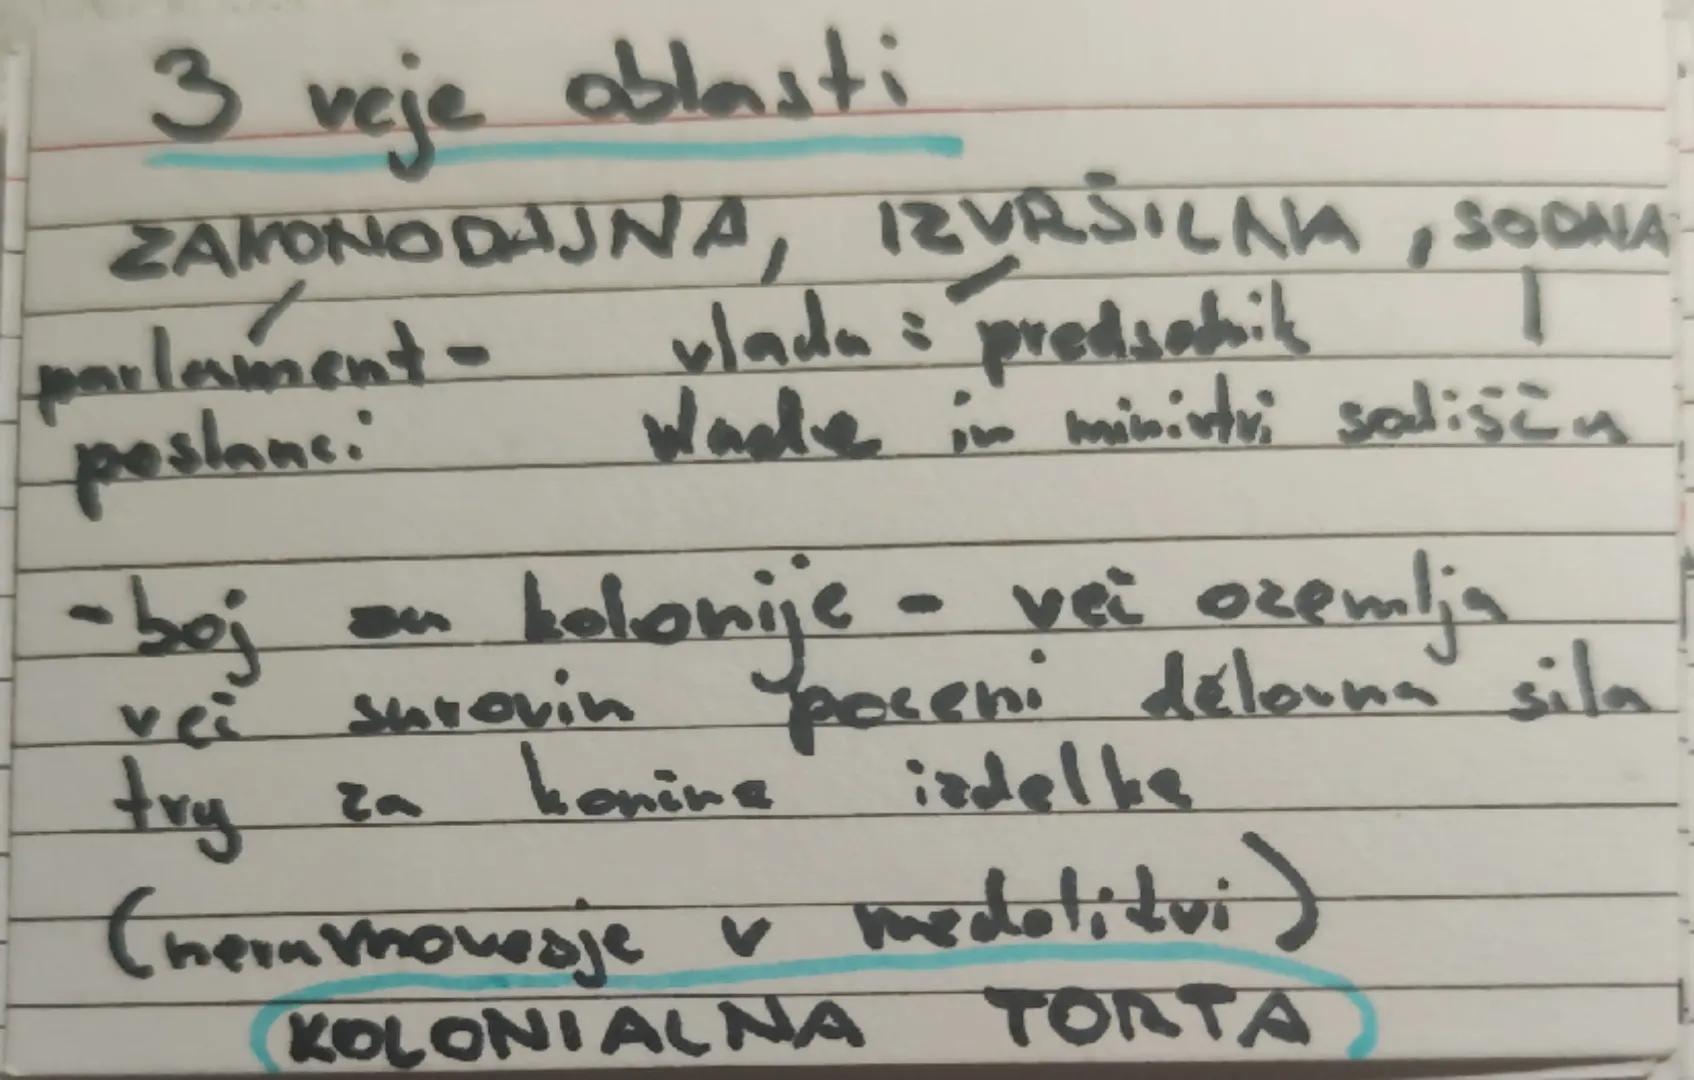 3 veje oblasti
ZAKONODAJNA, IZVRŠILNA, SODNA
parlament - vlada: predsednik
poslanci vlade in ministri sodišča
- boj za kolonije - več ozemlja
več surovin poceni delovna sila
trg za končne izdelke
(neravnovesje v)
KOLONIALNA TORTA